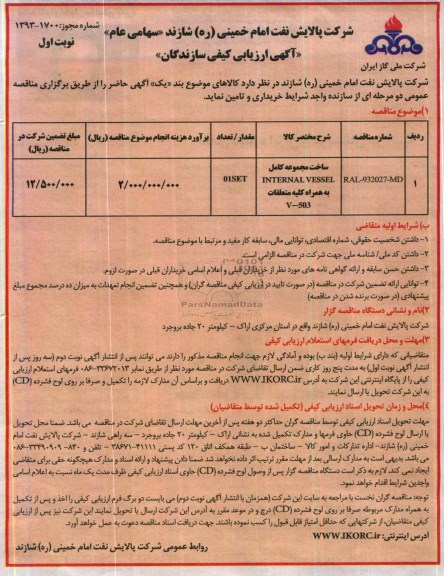 شرکت پالایش نفت امام خمینی (ره) شازند «سهامی عام»
شماره مجوز: ۱۷۰۰-۱۳۹۳
نوبت اول
«آگهی ارزیابی کیفی سازندگان»
شرکت ملی گاز ایران
شرکت پالایش نفت امام خمینی (ره) شازند در نظر دارد کالاهای موضوع بند «یک» آگهی حاضر را از طریق برگزاری مناقصه
عمومی دو مرحله ای از سازنده واجد شرایط خریداری و تامین نماید.
۱)موضوع مناقصه
ردیف
شماره مناقصه
شرح مختصر کالا
مقدار / تعداد
برآورد هزینه انجام موضوع مناقصه (ریال)
مبلغ تضمین شرکت در
مناقصه (ریال)
۱
RAL-932027-MD
ساخت مجموعه کامل
INTERNAL VESSEL
به همراه کلیه متعلقات
V-503
01SET
۲/۰۰۰/۰۰۰/۰۰۰
۱۲/۵۰۰/۰۰۰
ب) شرایط اولیه متقاضی
۱- داشتن شخصیت حقوقی، شماره اقتصادی، توانایی مالی، سابقه کار مفید و مرتبط با موضوع مناقصه.
۲- داشتن کد ملی/ شناسه ملی جهت شرکت در مناقصه الزامی است.
۳- داشتن حسن سابقه و ارائه گواهی نامه های مورد نظر از خریداران قبلی و اعلام اسامی خریداران قبلی در صورت لزوم.
۴- توانایی ارائه تضمین شرکت در مناقصه (در صورت تایید در ارزیابی کیفی مناقصه گران) و همچنین تضمین انجام تعهدات به میزان ده درصد مجموع مبلغ
پیشنهادی (در صورت برنده شدن در مناقصه)
ParsNamadData
۲)نام و نشانی دستگاه مناقصه گزار
شرکت پالایش نفت امام خمینی (ره) شازند واقع در استان مرکزی اراک – کیلومتر ۲۰ جاده بروجرد
۳)مهلت و محل دریافت فرمهای استعلام ارزیابی کیفی
متقاضیانی که دارای شرایط اولیه (بند ب) بوده و آمادگی لازم جهت انجام مناقصه مذکور را دارند می توانند پس از انتشار آگهی نوبت دوم (سه روز پس از
انتشار آگهی نوبت اول) به مدت پنج روز کاری ضمن ارسال تقاضای شرکت در مناقصه مورد نظر از طریق نمابر ۳۳۶۷۲۰۱۳-۰۸۶ فرمهای استعلام ارزیابی
کیفی را از پایگاه اینترنتی این شرکت به آدرس WWW.IKORC.ir دریافت و براساس آن مدارک لازمه را تکمیل و صرفا بر روی لوح فشرده (CD)
به این شرکت تحویل یا ارسال نمایند.
۴)محل و زمان تحویل اسناد ارزیابی کیفی (تکمیل شده توسط متقاضیان)
مهلت تحویل اسناد ارزیابی کیفی توسط مناقصه گران حداکثر دو هفته پس از آخرین مهلت ارسال تقاضای شرکت در مناقصه می باشد ضمنا محل تحویل
یا ارسال لوح فشرده (CD) حاوی فرمها و مدارک تکمیل شده به نشانی اراک – کیلومتر ۲۰ جاده بروجرد – سه راهی شازند – شرکت پالایش نفت امام
خمینی (ره) شازند – اداره تدارکات و امور کالا – ساختمان ب – طبقه همکف اتاق ۱۲۰ کد پستی
می باشد بدیهی است به مدارک ارسالی بعد از مهلت مقرر ترتیب اثر داده نخواهد شد ضمنا دادن پیشنهاد و ارائه اسناد و مدارک هیچگونه حقی برای متقاضی
ایجاد نمی کند. لازم به ذکر است دستگاه مناقصه گزار پس از وصول لوح فشرده (CD) حاوی اسناد ارزیابی کیفی ظرف مدت یک ماه نسبت به اعلام اسامی
واجدین شرایط اقدام خواهد نمود.
توجه: مناقصه گران نخست با مراجعه به سایت این شرکت (همزمان با انتشار آگهی نوبت دوم) می بایست دو برگ فرم ارزیابی کیفی را اخذ و پس از تکمیل
به همراه مدارک مربوطه صرفا بر روی لوح فشرده (CD) درج و در موعد مقرر به آدرس این شرکت ارسال یا تحویل نمایند این شرکت نیز پس از ارزیابی
کیفی متقاضیان، از شرکتهایی که حداقل امتیاز قابل قبول را کسب نموده باشند. جهت دریافت اسناد مناقصه دعوت به عمل خواهد آورد.
آدرس اینترنتی: WWW.IKORC.ir
روابط عمومی شرکت پالایش نفت امام خمینی (ره) شازند